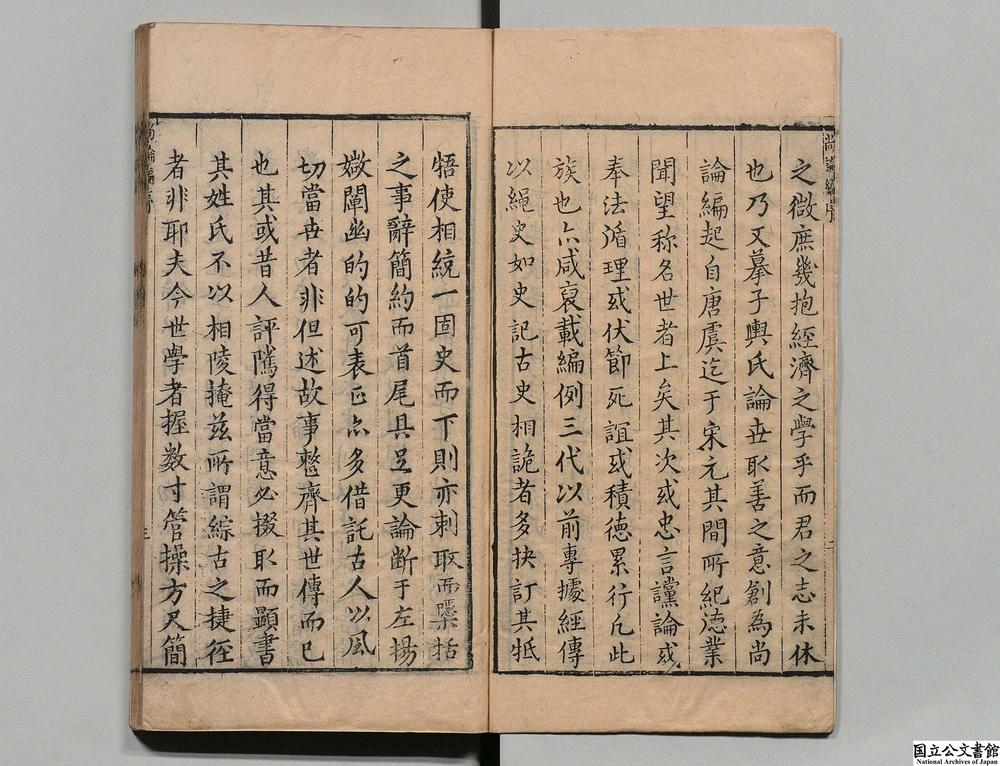 尚論編序
之微庶幾抱經濟之學乎而君之志未休
也乃又摹子輿氏論世取善之意創為尚
論編起自唐虞迄于宋元其間所紀德業
聞望称名世者上矣其次或忠言讜論或
奉法循理或伏節死誼或積德累行凡此
族也亦咸裒載編例三代以前專據經傳
以繩史如史記古史相詭者多抉訂其牴
二
牾使相統一固史而下則亦刺取而櫽括
之事辭簡約而首尾具足更論斷于左揚
媺闡幽的的可表正亦多借託古人以風
切當世者非但述故事整齊其世傳而已
也其或昔人評隲得當意必掇取而顯書
其姓氏不以相陵掩茲所謂綜古之捷徑
者非耶夫今世學者握数寸管操方尺簡
尚論編序
三
国立公文書館
National Archives of Japan